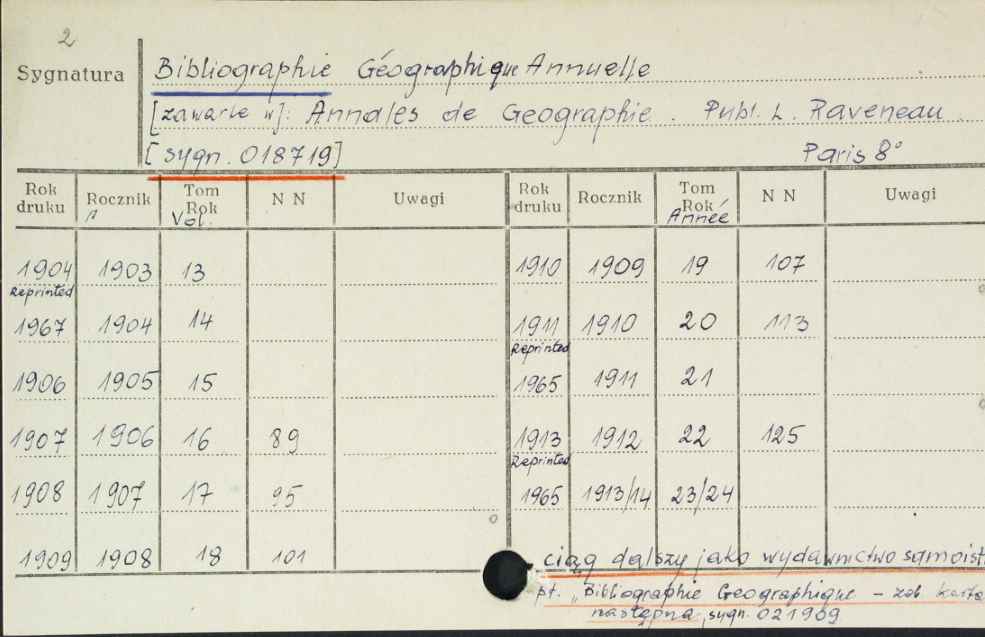 2
Sygnatura
Bibliographie Géographique Annuelle
[zawarte w]: Annales de Geographie. Publ. L. Raveneau
[sygn. 018719] Paris 8°
Rok druku Rocznik Tom Rok Vol. N N Uwagi
1904 1903 13
Reprinted
1967 1904 14
1906 1905 15
1907 1906 16 89
1908 1907 17 95
1909 1908 18 101
Rok druku Rocznik Tom Rok Année N N Uwagi
1910 1909 19 107
1911 1910 20 113
Reprinted
1965 1911 21
1913 1912 22 125
Reprinted
1965 1913/14 23/24
ciąg dalszy jako wydawnictwo samoist
pt. „Bibliographie Geographique – zob karta
następna, sygn. 021909